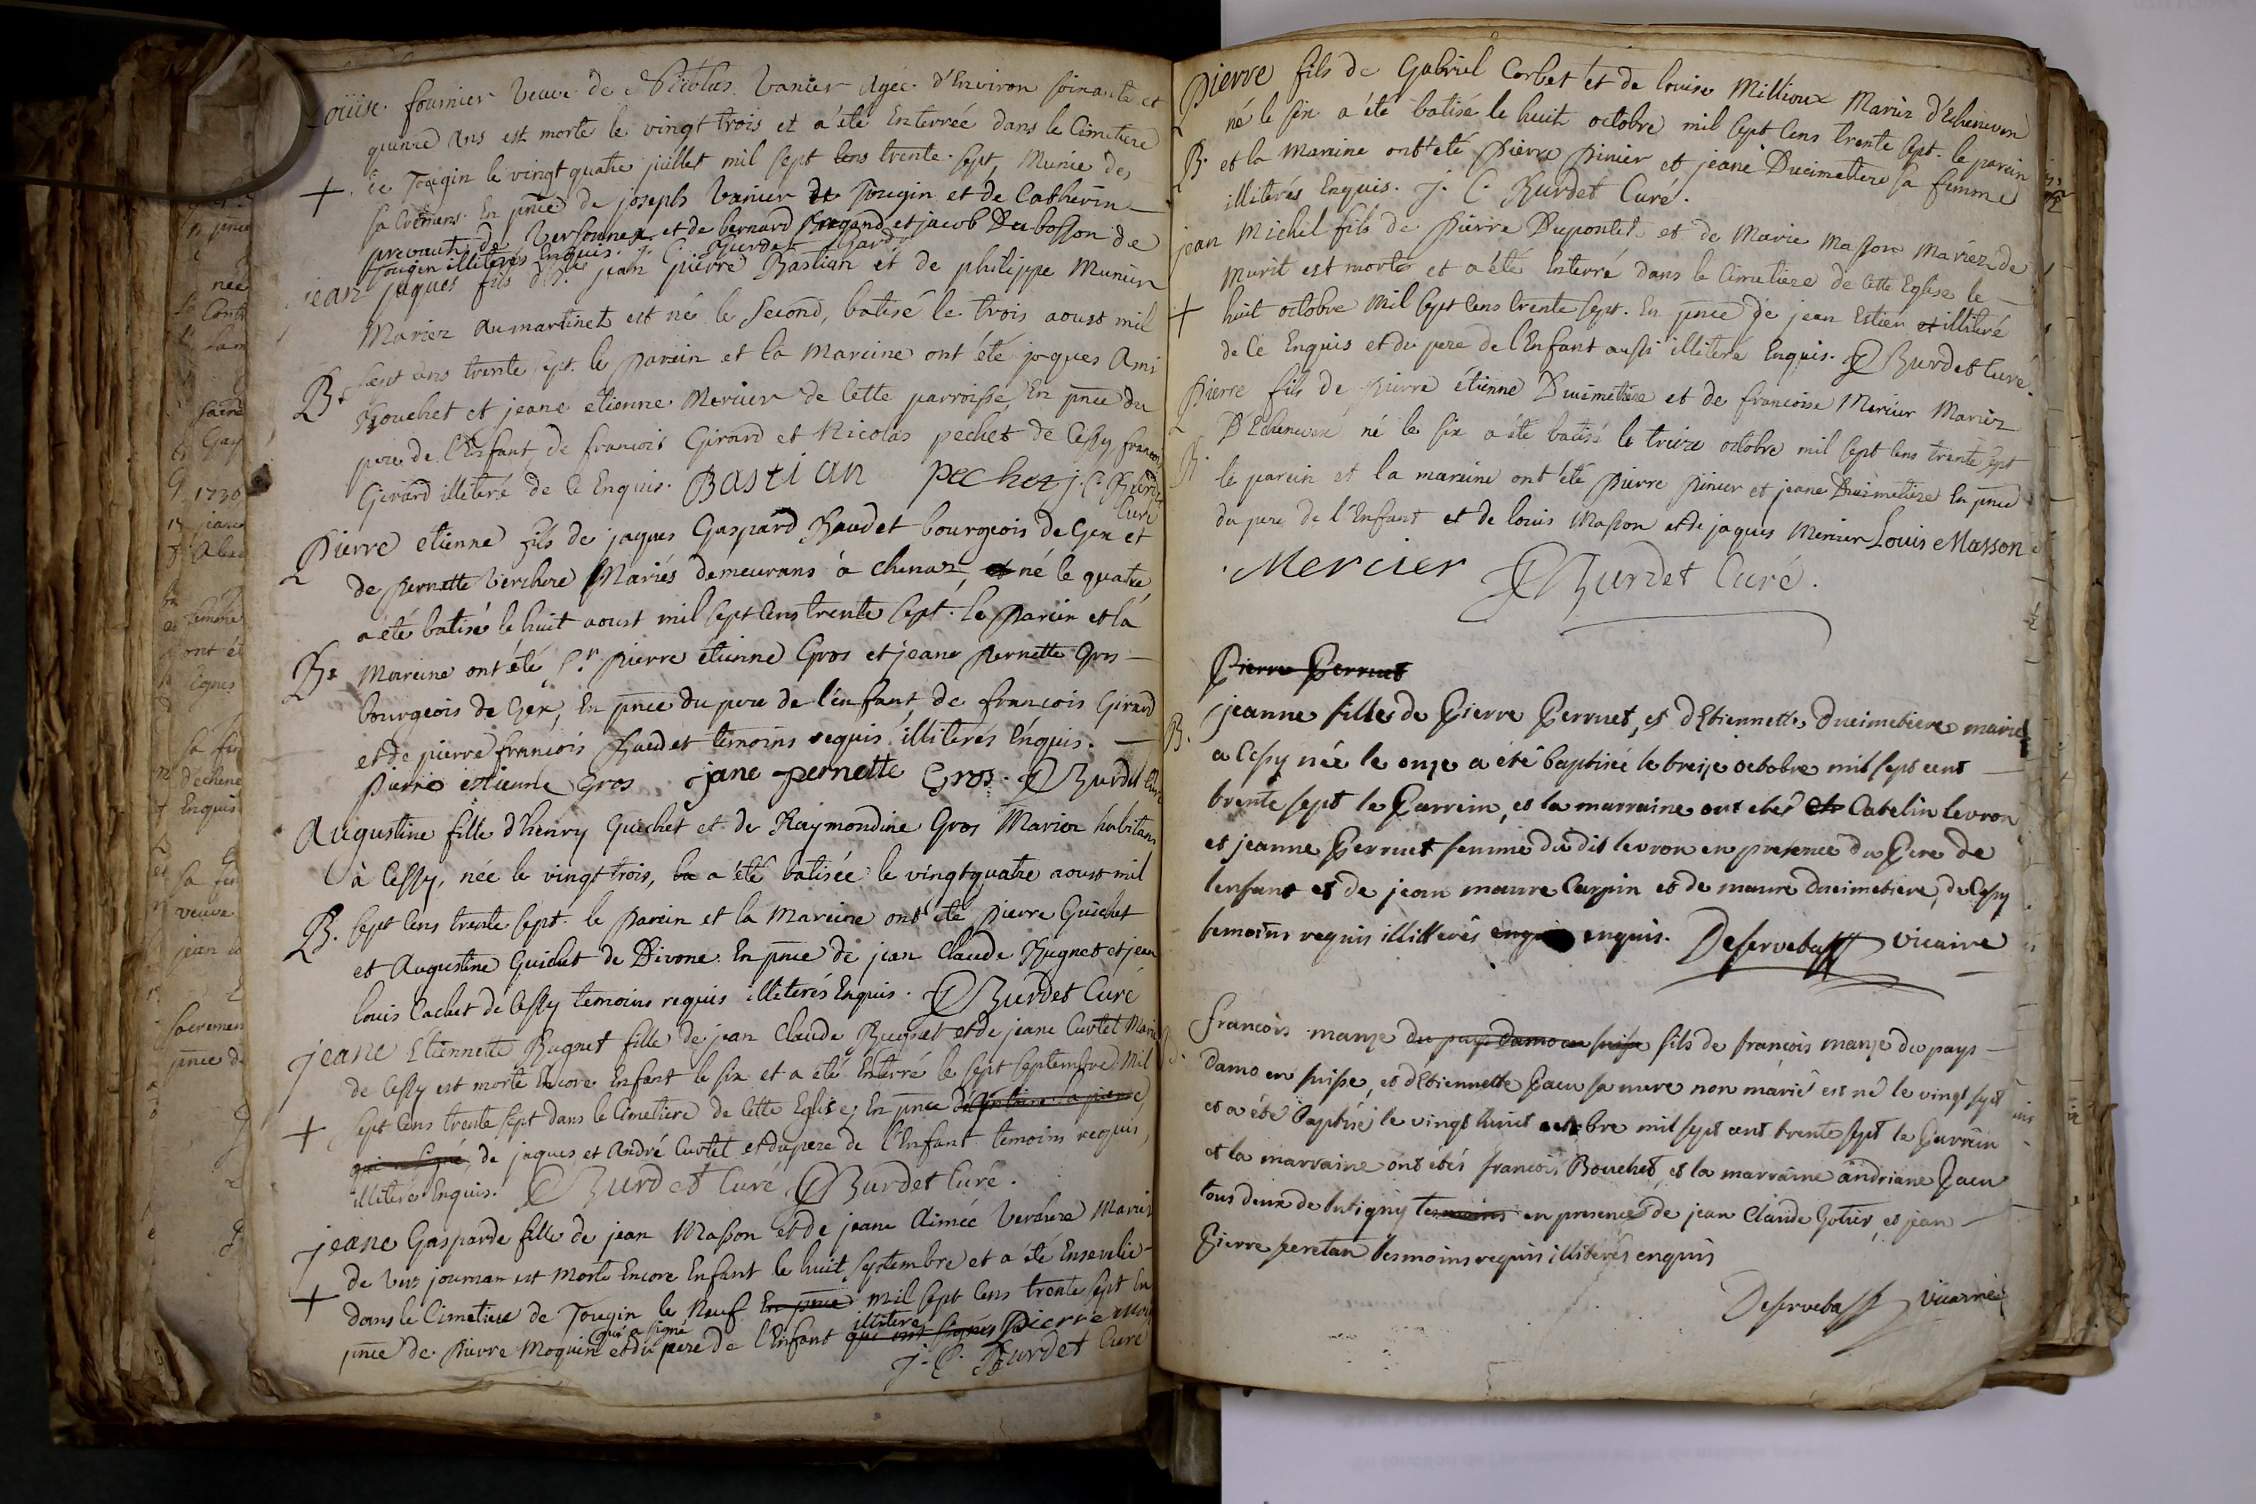 Louise fournier veuve de Nicolas Vanier Agée d'Environ soixante et
quinze ans est morte le vingt trois et a été Enterrée dans le Cimetiere
de Tougin le vingt quatre juillet mil sept cens trente sept, Munie des
+ sacremens. En pnce de joseph Vanier de Tougin et de Catherin
prevautz de Versonnex et de bernard et jacob Dubosson de
Tougin illiterés Enquis. J. C. Burdet
jean jaques fils de Sr. jean pierre Bastian et de philippe Munier
Mariez au martinet est né le second, batisé le trois aoust mil
B. sept cens trente sept. le parein et la Mareine ont été jaques Ami
Bouchet et jeane etienne Mercier de cette parroisse En pnce du
pere de l'Enfant de francois Girard et Nicolas pechet de Cessy, francois
Girard illiteré de ce Enquis. Bastian pechet j. C. Burdet
Curé
Pierre etienne fils de jaques Gaspard Baudet bourgeois de Gex et
de pernette Verchere Mariés demeurans à chenaz, et né le quatre
a été batisé le huit aoust mil sept cens trente sept. le Parein et la
B. Mareine ont été Sr. pierre etienne Gros et jeane pernette Gros
bourgeois de Gex, En pnce du pere de l'enfant de francois Girard
et de pierre francois Baudet temoins requis illiterés Enquis.
Pierre estienne Gros jane pernette Gros. Burdet Curé
Augustine fille d'henry Guichet et de Raymondine Gros Mariez habitans
à Cessy, née le vingt trois, la a été batisée le vingt quatre aoust mil
B. sept cens trente sept. le Parein et la Mareine ont été Pierre Guichet
et Augustine Guichet de Divone. En pnce de jean Claude Bugnet et jean
louis Cachet de Cessy temoins requis illiterés Enquis. Burdet Curé
jeane Etiennette Bugnet fille de jean Claude Bugnet et de jeane Curtet Mariés
de Cessy est morte Encore Enfant le six et a été Enterré le sept septembre Mil
+ sept cens trente sept dans le Cimetiere de cette Eglise; En pnce
qui a signé, de jaques et André Curtet et du pere de l'Enfant temoins requis,
illiteré Enquis. Burdet Curé Burdet Curé.
jeane Gasparde fille de jean Masson et de jeane Aimée Verchere Mariés
de Vuz journan est Morte Encore Enfant le huit septembre et a été Ensevelie
+ dans le Cimetiere de Tougin le Neuf En pnce mil sept cens trente sept En
qui a signé illiteré
pnce de Pierre Moquin et du pere de l'Enfant qui ont signés Pierre
J. C. Burdet Curé
Pierre fils de Gabriel Corbet et de louise Millioux Mariez d'Echenevex
né le six a été batisé le huit octobre mil sept cens trente sept. le parein
B. et la Mareine ont été Pierre Pinier et jeane Ducimetiere sa femme
illiterés Enquis. J. C. Burdet Curé.
jean Michel fils de Pierre Dupontet et de Marie Masson Mariez de
Murit est morte et a été Enterré dans le Cimetiere de cette Eglise le
+ huit octobre Mil sept cens trente sept. En pnce de jean Estier et illiteré
de ce Enquis et du pere de l'Enfant aussi illiteré Enquis. Burdet Curé.
Pierre fils de Pierre étienne Ducimetiere et de francoise Mercier Mariez
D'Echenevex né le six a été batisé le treize octobre mil sept cens trente sept
B. le parein et la mareine ont été Pierre Pinier et jeane Ducimetiere En pnce
du pere de l'Enfant et de louis Masson et de jaques Mercier Louis Masson
Mercier Burdet Curé.
Pierre Perruet
jeanne filles de Pierre Perruet, et d'Etiennette Ducimetiere mariés
B. a Cessy née le onze a été baptisée le treize octobre mil sept cent
trente sept le Parrein, et la marraine ont étés Catelin levron
et jeanne Perruet femme du dit levron en presence du Pere de
lenfant et de jean maure Carpin et de maure ducimetiere, de Cessy
temoins requis illitterés enquis. Deservetaz vicaire
francois manze du pays damo en suisse fils de francois manze du pays
damo en suisse, et d'Etiennette Pacu sa mere non marié est né le vingt sept
et a été baptisé le vingt huict octobre mil sept cent trente sept le Parrein
et la marraine ont étés francois Bouchet, et la marraine andriane Pacu
tous deux de putigny temoins en presence de jean Claude Gotier, et jean
Pierre peretan tesmoins requis illiterés enquis
Deservetaz vicaire